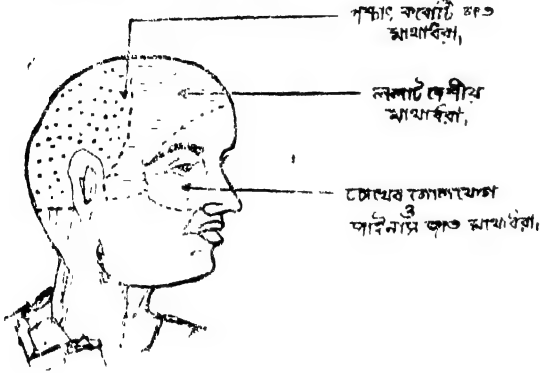 পশ্চাৎ করোটি জাত
মাথাধরা,
ললাট দেশীয়
মাথাধরা,
চোখের গোলযোগ
ও
সাইনাস জাত মাথাধরা,